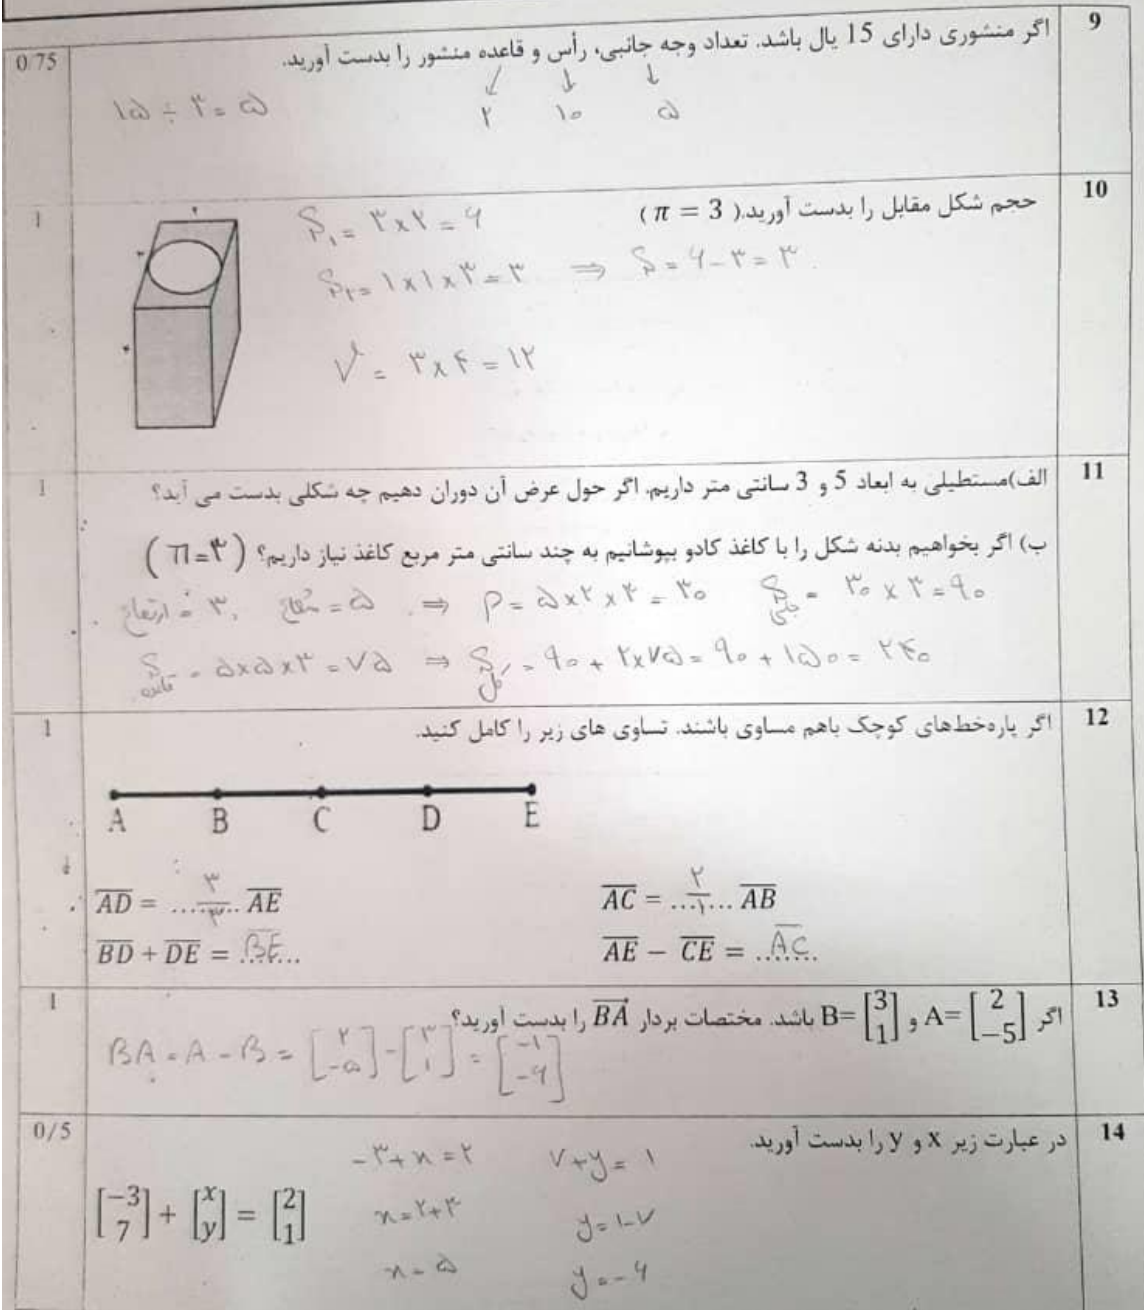 9
اگر منشوری دارای 15 یال باشد. تعداد وجه جانبی، رأس و قاعده منشور را بدست آورید.
0/75
↓ ↓ ↓
۵ ۱۰ ۲
۱۵ ÷ ۳ = ۵
10
حجم شکل مقابل را بدست آورید.( π = 3 )
1
۲
۳
۴
S₁ = ۳×۲ = ۶
S₂ = ۱×۱×۳ = ۳ ⇒ S = ۶-۳ = ۳
V = ۳×۴ = ۱۲
11
الف)مستطیلی به ابعاد 5 و 3 سانتی متر داریم. اگر حول عرض آن دوران دهیم چه شکلی بدست می آید؟
1
ب) اگر بخواهیم بدنه شکل را با کاغذ کادو بپوشانیم به چند سانتی متر مربع کاغذ نیاز داریم؟ (π=۳)
ارتفاع = ۳ , شعاع = ۵ ⇒ P = ۵×۲×۳ = ۳۰ S جانبی = ۳۰×۳ = ۹۰
S قاعده = ۵×۵×۳ = ۷۵ ⇒ S کل = ۹۰ + ۲×۷۵ = ۹۰ + ۱۵۰ = ۲۴۰
12
اگر پاره‌خط‌های کوچک باهم مساوی باشند. تساوی های زیر را کامل کنید.
1
A B C D E
AD = ...۳/۳... AE
AC = ...۲/۱... AB
BD + DE = ..BE...
AE − CE = ..AC...
13
اگر A= [2 −5] و B= [3 1] باشد. مختصات بردار BA را بدست آورید؟
1
BA = A - B = [۲ -۵] - [۳ ۱] = [-۱ -۶]
14
در عبارت زیر x و y را بدست آورید.
0/5
[−3 7] + [x y] = [2 1]
-۳+x=۲ ۷+y=۱
x=۲+۳ y=۱-۷
x=۵ y=-۶